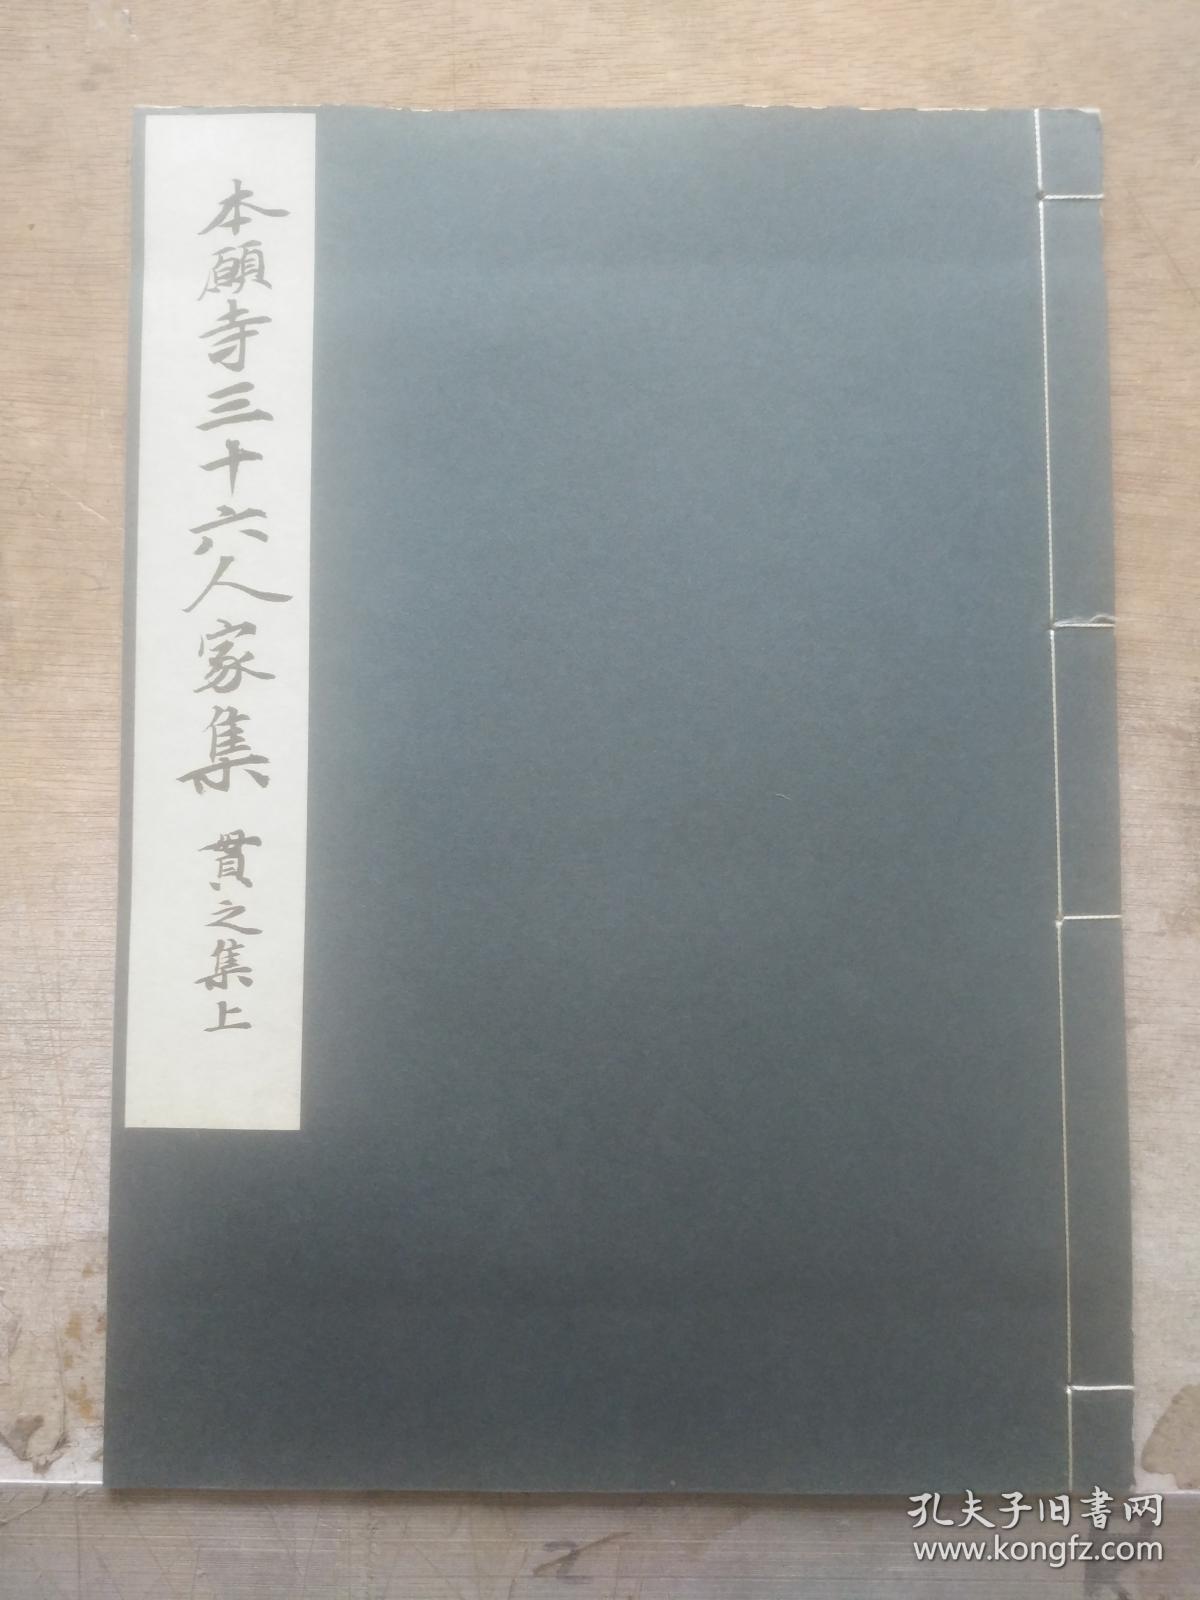 本願寺三十六人家集 貫之集上
孔夫子旧书网
www.kongfz.com